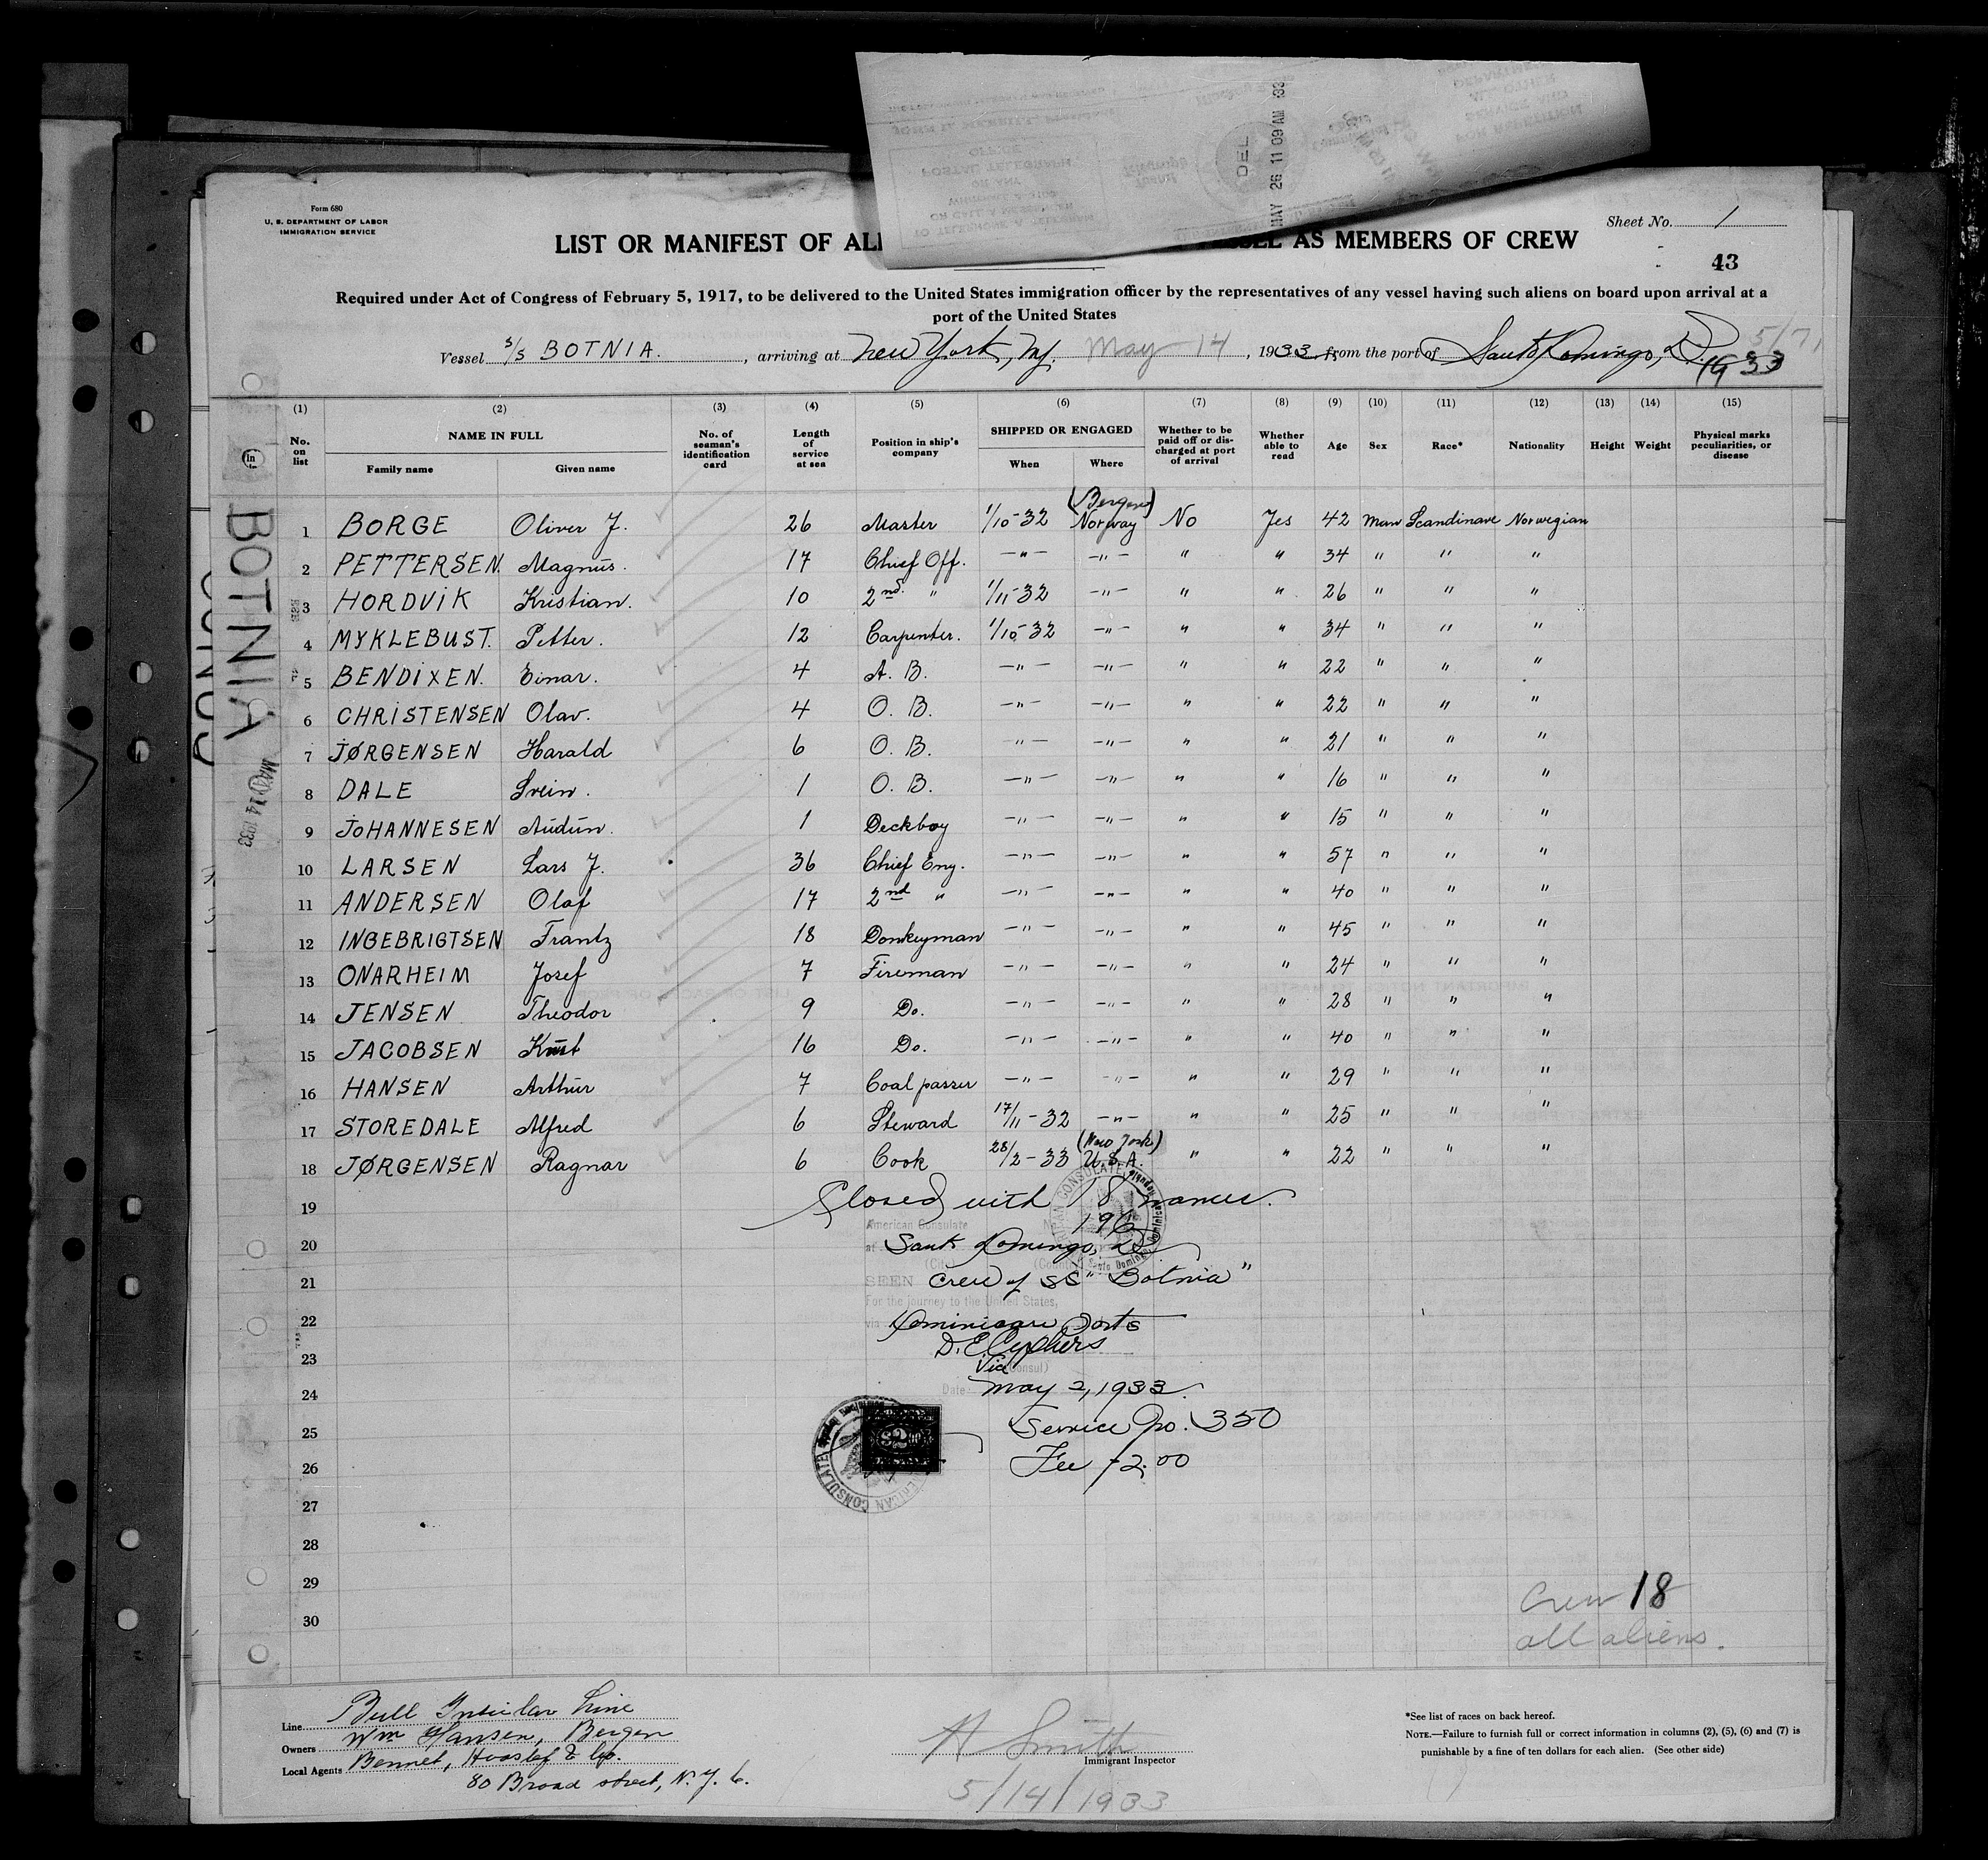 Form 680
U. S. DEPARTMENT OF LABOR
IMMIGRATION SERVICE
DEL
MAY 26 11 09 AM '33
Sheet No. 1
LIST OR MANIFEST OF AS MEMBERS OF CREW
43
Required under Act of Congress of February 5, 1917, to be delivered to the United States immigration officer by the representatives of any vessel having such aliens on board upon arrival at a
port of the United States
Vessel S/S BOTNIA. , arriving at New York, NY. May 14 , 1933, from the port of Santo Domingo, D.
5/7/
1933
(1) (2) (3) (4) (5) (6) (7) (8) (9) (10) (11) (12) (13) (14) (15)
No. on list NAME IN FULL Family name Given name No. of seaman's identification card Length of service at sea Position in ship's company SHIPPED OR ENGAGED When Where Whether to be paid off or discharged at port of arrival Whether able to read Age Sex Race* Nationality Height Weight Physical marks peculiarities, or disease
BOTNIA
MAY 14 1933
1 BORGE Oliver J. 26 Master 1/10-32 (Bergen) Norway No Yes 42 man Scandinave Norwegian
2 PETTERSEN. Magnus. 17 Chief Off. —"— —"— " " 34 " " "
3 HORDVIK Kristian. 10 2nd. " 1/11-32 —"— " " 26 " " "
4 MYKLEBUST. Petter. 12 Carpenter. 1/10-32 —"— " " 34 " " "
5 BENDIXEN. Einar. 4 A. B. —"— —"— " " 22 " " "
6 CHRISTENSEN Olav. 4 O. B. —"— —"— " " 22 " " "
7 JØRGENSEN Harald 6 O. B. —"— —"— " " 21 " " "
8 DALE Svein. 1 O. B. —"— —"— " " 16 " " "
9 JOHANNESEN Audun. 1 Deckboy —"— —"— " " 15 " " "
10 LARSEN Lars J. 36 Chief Eng. —"— —"— " " 57 " " "
11 ANDERSEN Olaf 17 2nd " —"— —"— " " 40 " " "
12 INGEBRIGTSEN Frantz 18 Donkeyman —"— —"— " " 45 " " "
13 ONARHEIM Josef 7 Fireman —"— —"— " " 24 " " "
14 JENSEN Theodor 9 Do. —"— —"— " " 28 " " "
15 JACOBSEN Knut 16 Do. —"— —"— " " 40 " " "
16 HANSEN Arthur 7 Coal passer —"— —"— " " 29 " " "
17 STOREDALE Alfred 6 Steward 17/11-32 —"— " " 25 " " "
18 JØRGENSEN Ragnar 6 Cook 28/2-33 (New York) U.S.A. " " 22 " " "
19 Closed with 18 names.
American Consulate No. 196
20 at Santo Domingo, D.R.
(City) (Country)
21 SEEN Crew of SS "Botnia"
For the journey to the United States,
22 via Dominican Ports
23 D. E. Cyphers
Vice (Consul)
24 Date May 2, 1933.
25 Service No. 350
26 Fee $2.00
AMERICAN CONSULATE
27
28
29
30
Crew 18
all aliens.
Line Bull Insular Line
Owners Wm Hansen, Bergen
Local Agents Bennet, & Co.
80 Broad street, N. Y. C.
A Smith
Immigrant Inspector
5/14/1933
*See list of races on back hereof.
NOTE.—Failure to furnish full or correct information in columns (2), (5), (6) and (7) is
punishable by a fine of ten dollars for each alien. (See other side)